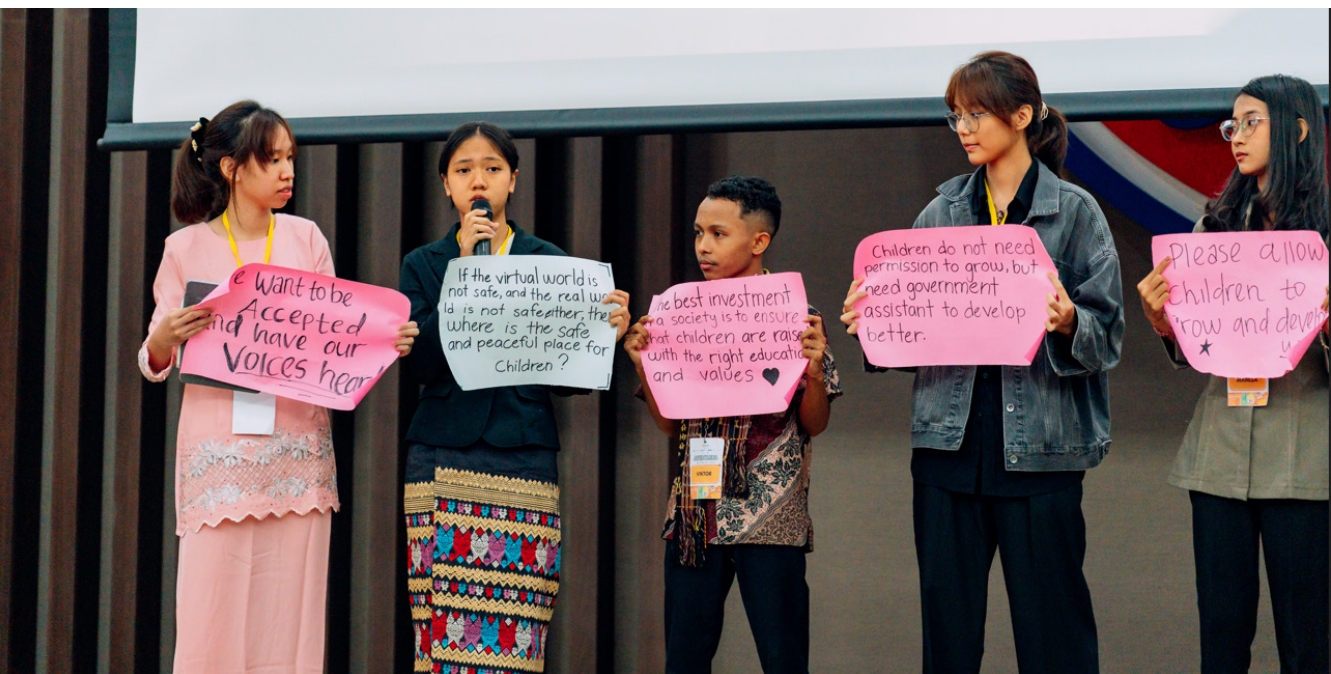 e Want to be
Accepted
nd have our
Voices hear
If the virtual world is
not safe, and the real wo
ld is not safe either, the
where is the safe
and peaceful place for
Children ?
he best investment
a society is to ensure
hat children are raise
with the right educatio
and values ♥
VIKTOR
Children do not need
permission to grow, but
need government
assistant to develop
better.
Please allow
children to
row and develo